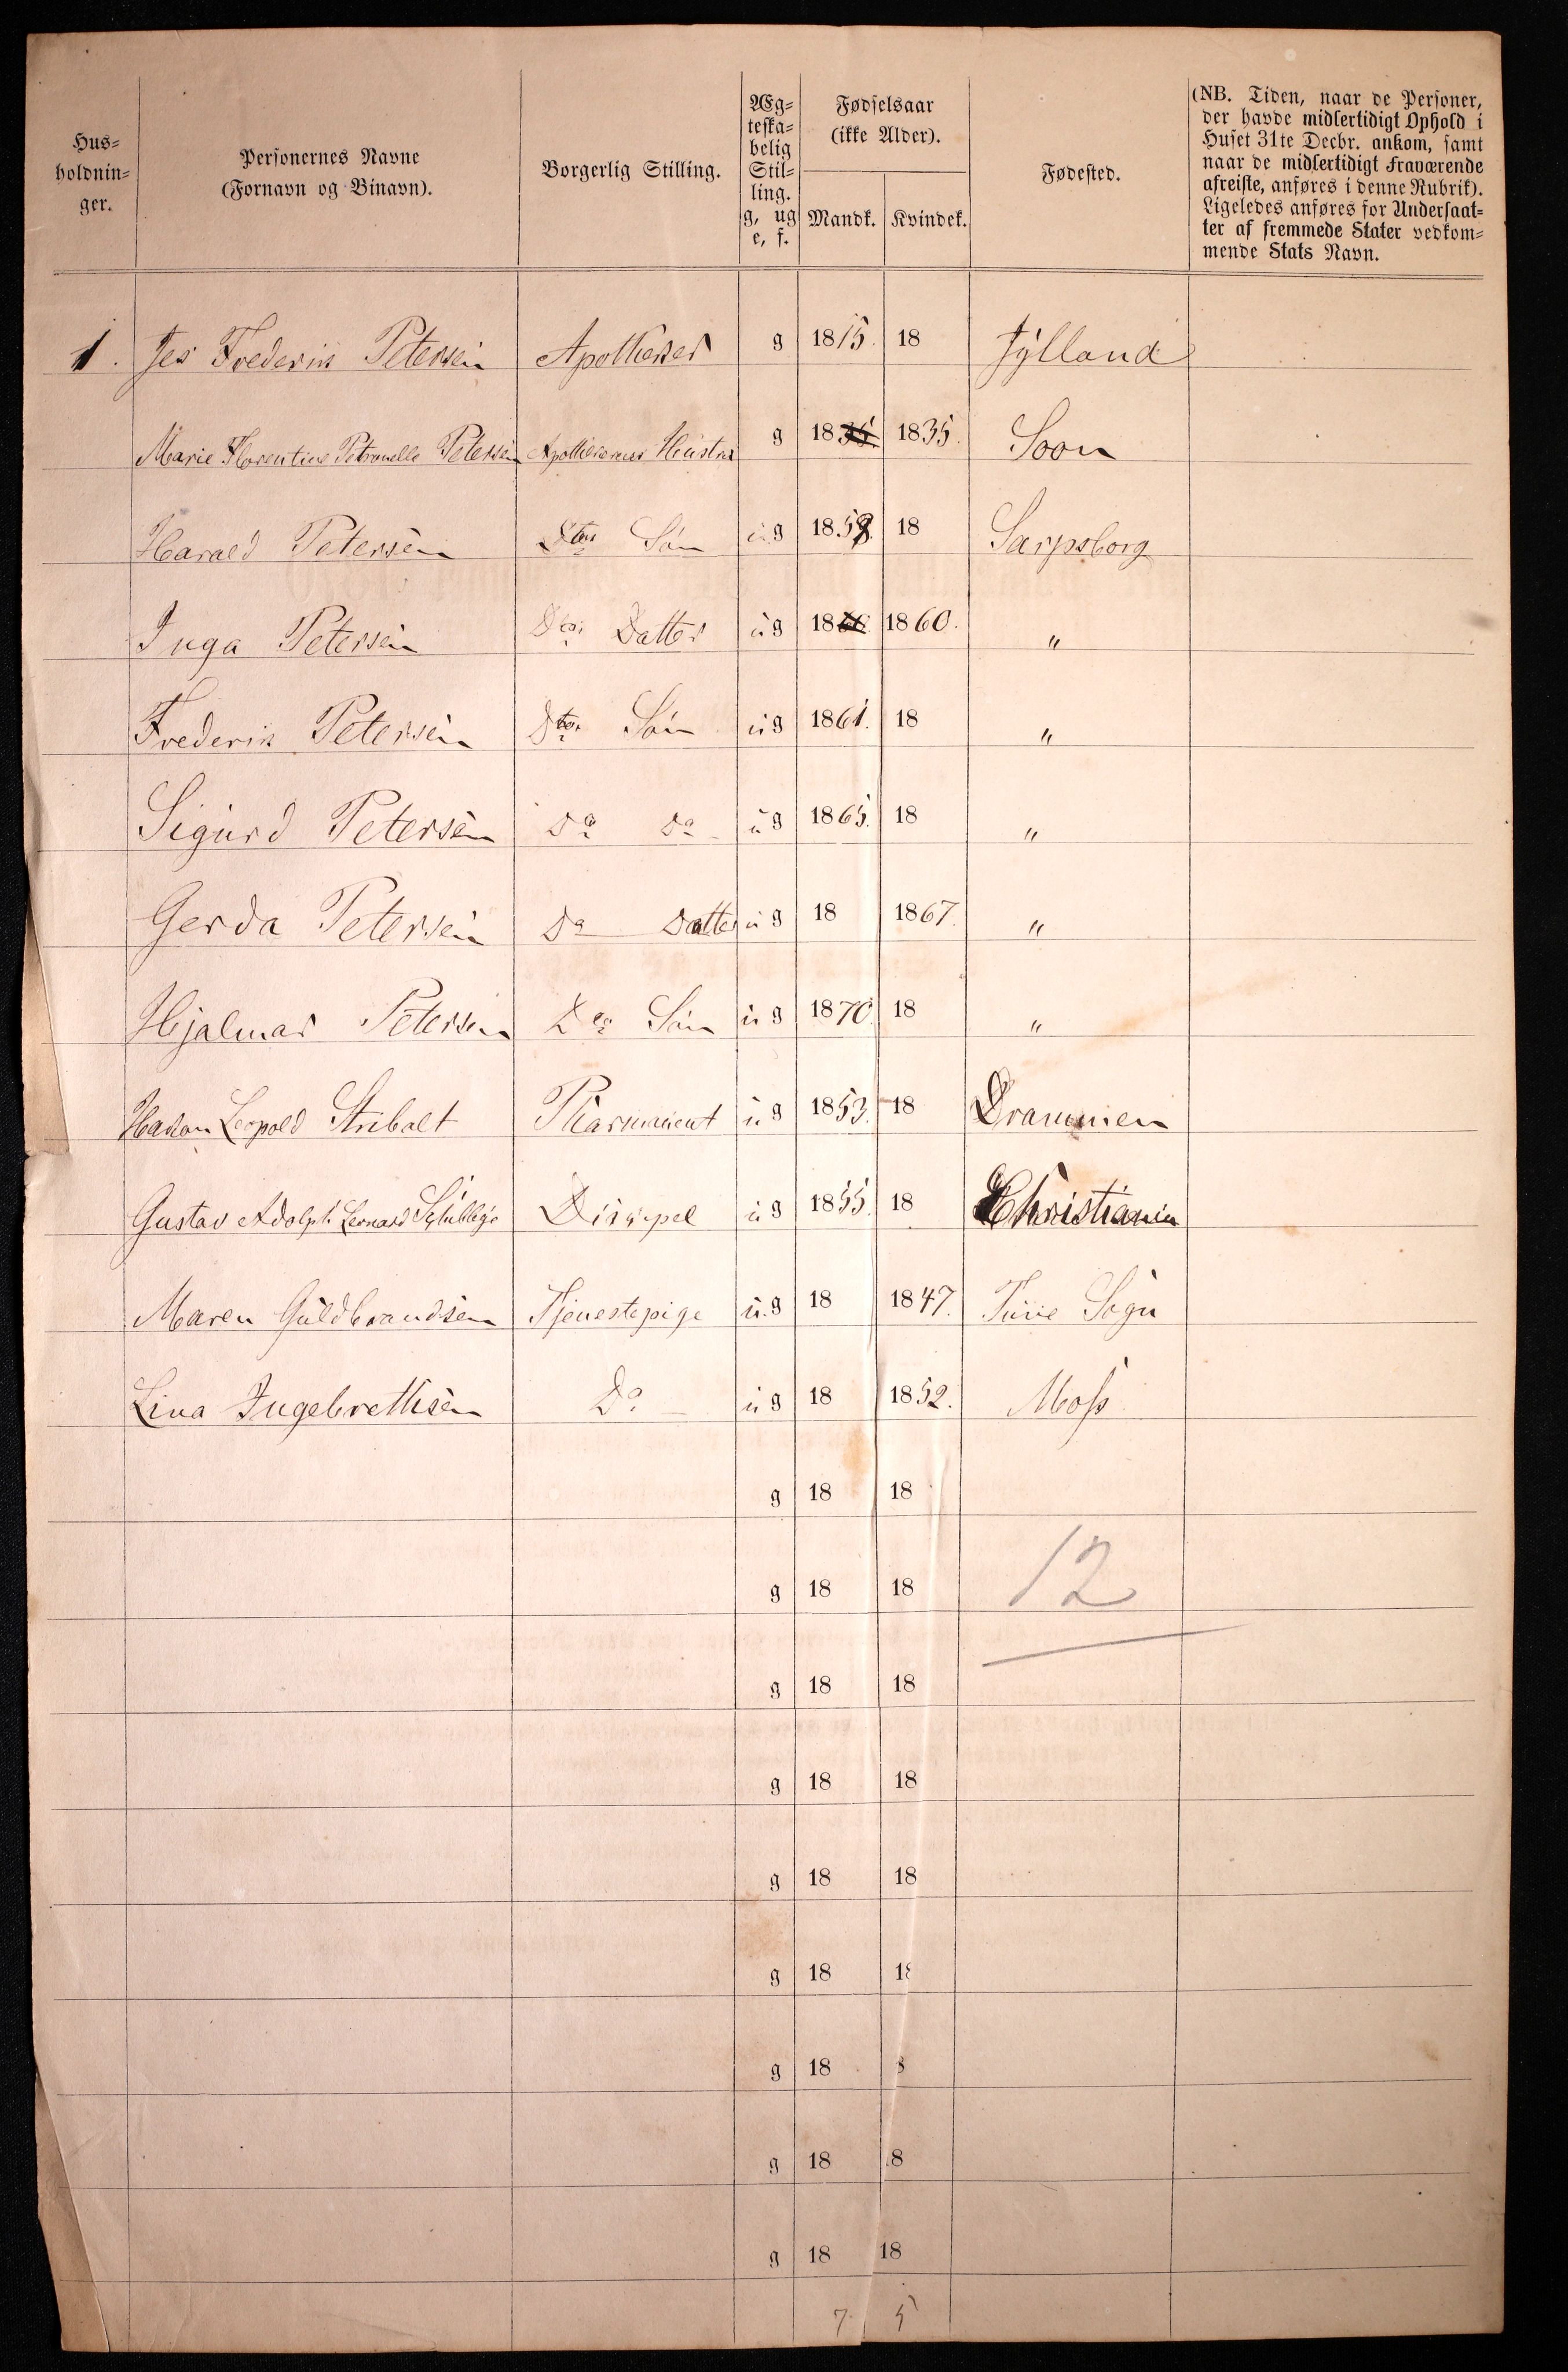 Hus=
holdnin=
ger.
Personernes Navne
(Fornavn og Binavn).
Borgerlig Stilling.
Æg=
teska=
belig
Stil=
ling.
g, ug
e, f.
Fødselsaar
(ikke Alder).
Mandk. Kvindek.
Fødested.
(NB. Tiden, naar de Personer,
der havde midlertidigt Ophold i
Huset 31te Decbr. ankom, samt
naar de midlertidigt Fraværende
afreiste, anføres i denne Rubrik).
Ligeledes anføres for Undersaat=
ter af fremmede Stater vedkom=
mende Stats Navn.
1. Jes Frederik Petersen Apotheker g 1815. 18 Jylland
Marie Florentine Petronelle Petersen Apothekerens Hustru g 18 1835. Soon
Harald Petersen Søn ug 185 18 Sarpsborg
Inga Petersen Datter ug 18 1860. "
Frederik Petersen Søn ug 1861. 18 "
Sigurd Petersen Do Do ug 1865. 18 "
Gerda Petersen Do Datter ug 18 1867. "
Hjalmar Petersen Do Søn ug 1870. 18 "
Hakon Leopold Stribolt Pharmaceut ug 1853. 18 Drammen
Gustav Adolph Lennard Discipel ug 1855. 18 Christiania
Maren Guldbrandsen Tjenestepige ug 18 1847. Tune Sogn
Lina Ingebrethsen Do ug 18 1852. Moss
g 18 18
g 18 18 12
g 18 18
g 18 18
g 18 18
g 18 18
g 18 8
g 18 8
g 18 18
7 5